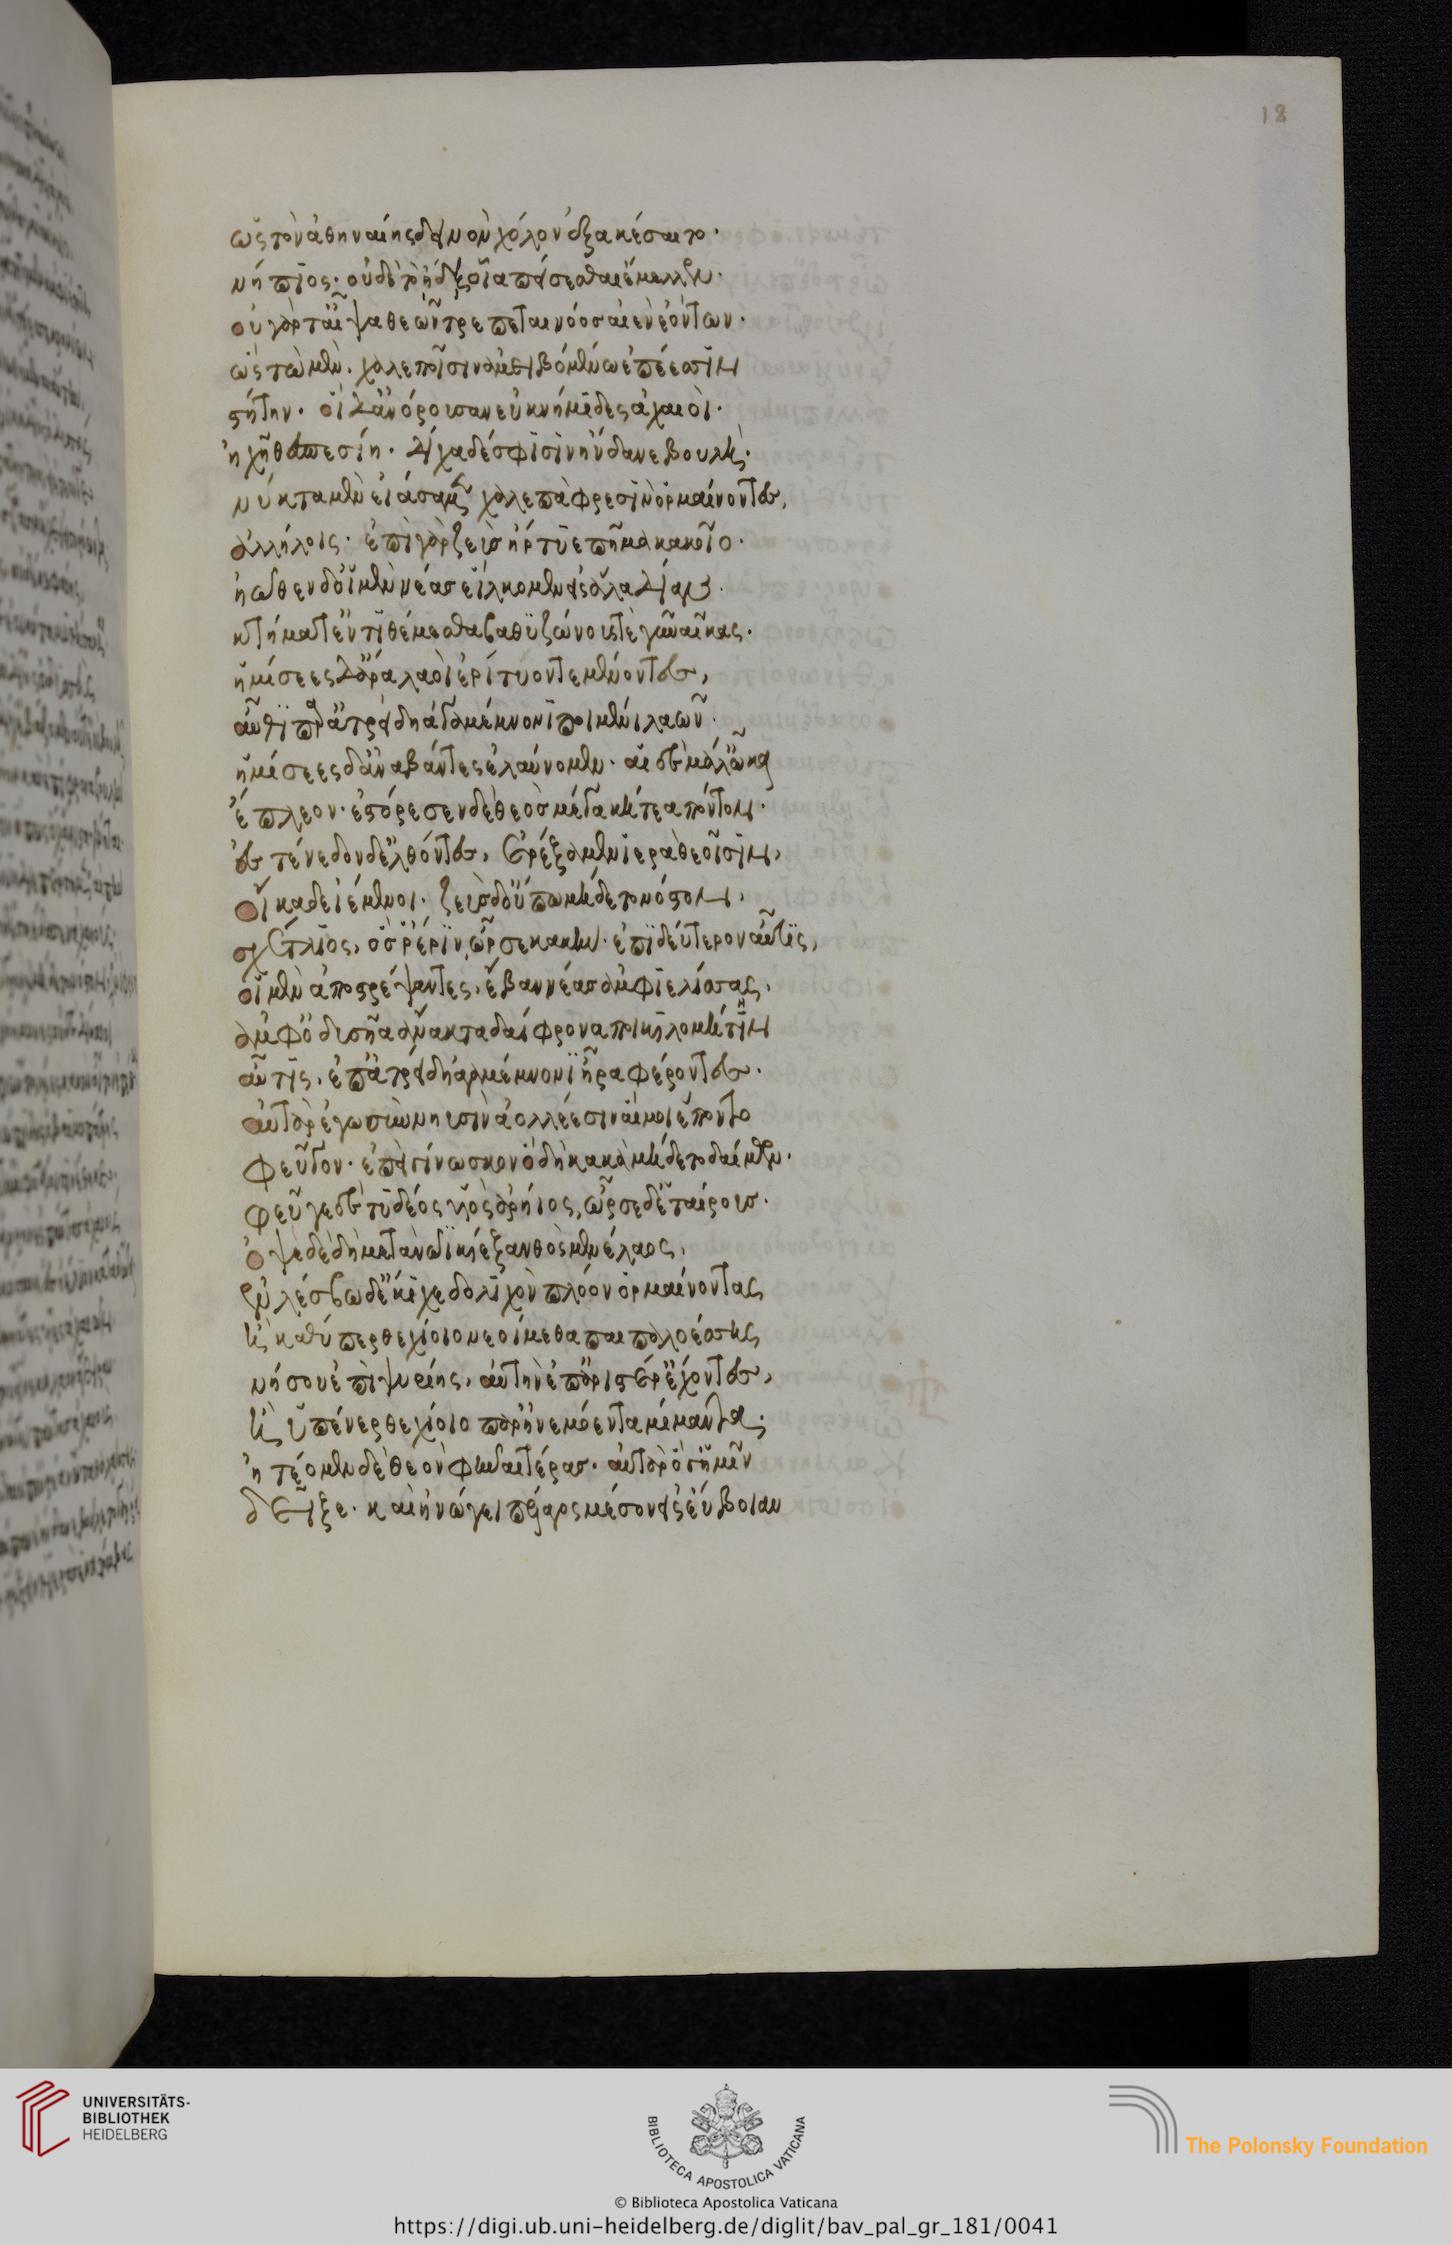 18
ὡς τὸν ἀθηναίης δεινὸν χόλον ἐξακέσαιτο·
νήπιος· οὐδὲ τὸ ᾔδη ὃ οὐ πείσεσθαι ἔμελλεν·
οὐ γάρ τ' αἶψα θεῶν τρέπεται νόος αἰὲν ἐόντων·
ὣς τὼ μὲν χαλεποῖσιν ἀμειβομένω ἐπέεσσιν
ἕστατην· οἱ δ' ἀνόρουσαν ἐϋκνήμιδες ἀχαιοὶ·
ἠχῇ θεσπεσίῃ· δίχα δέ σφισιν ἥνδανε βουλή·
νύκτα μὲν ἀέσαμεν χαλεπὰ φρεσὶν ὁρμαίνοντες,
ἀλλήλοις· ἐπὶ γὰρ ζεὺς ἤρτυε πῆμα κακοῖο·
ἠῶθεν δ' οἱ μὲν νέας εἵλκομεν εἰς ἅλα δῖαν·
κτήματ' ἐντιθέμεσθα βαθυζώνους τε γυναῖκας·
ἡμίσεες δ' ἄρα λαοὶ ἐρητύοντο μένοντες,
αὖθι παρ' ἀτρείδῃ ἀγαμέμνονι ποιμένι λαῶν·
ἡμίσεες δ' ἀναβάντες ἐλαύνομεν· αἱ δὲ μάλ' ὦκα
ἔπλεον· ἐστόρεσεν δὲ θεὸς μεγακήτεα πόντον·
ἐς τένεδον δ' ἐλθόντες, ἐρέξαμεν ἱερὰ θεοῖσιν,
οἴκαδε ἱέμενοι· ζεὺς δ' οὔπω μήδετο νόστον,
σχέτλιος, ὅς ῥ' ἔριν ὦρσε κακὴν ἐπὶ δεύτερον αὖτις,
οἱ μὲν ἀποστρέψαντες, ἔβαν νέας ἀμφιελίσσας,
ἀμφ' ὀδυσῆα ἄνακτα δαίφρονα ποικιλομήτην
αὖτις, ἐπ' ἀτρείδῃ ἀγαμέμνονι ἦρα φέροντες·
αὐτὰρ ἐγὼ σὺν νηυσὶν ἀολλέσιν αἵ μοι ἕποντο
φεῦγον· ἐπεὶ γίνωσκον ὃ δὴ κακὰ μήδετο δαίμων·
φεῦγε δὲ τυδέος υἱὸς ἀρήιος, ὦρσε δ' ἑταίρους·
ὀψὲ δὲ δὴ μετὰ νῶϊ κίε ξανθὸς μενέλαος,
ἐν λέσβῳ δ' ἔκιχε δολιχὸν πλόον ὁρμαίνοντας
ἢ καθύπερθε χίοιο νεοίμεθα παιπαλοέσσης
νήσου ἐπὶ ψυρίης, αὐτὴν ἐπ' ἀρίστερ' ἔχοντες,
ἢ ὑπένερθε χίοιο παρ' ἠνεμόεντα μίμαντα·
ᾐτέομεν δὲ θεὸν φῆναι τέρας· αὐτὰρ ὅ γ' ἡμῖν
δεῖξε· καὶ ἠνώγει πέλαγος μέσον εἰς εὔβοιαν
UNIVERSITÄTS-
BIBLIOTHEK
HEIDELBERG
BIBLIOTECA APOSTOLICA VATICANA
The Polonsky Foundation
© Biblioteca Apostolica Vaticana
https://digi.ub.uni-heidelberg.de/diglit/bav_pal_gr_181/0041